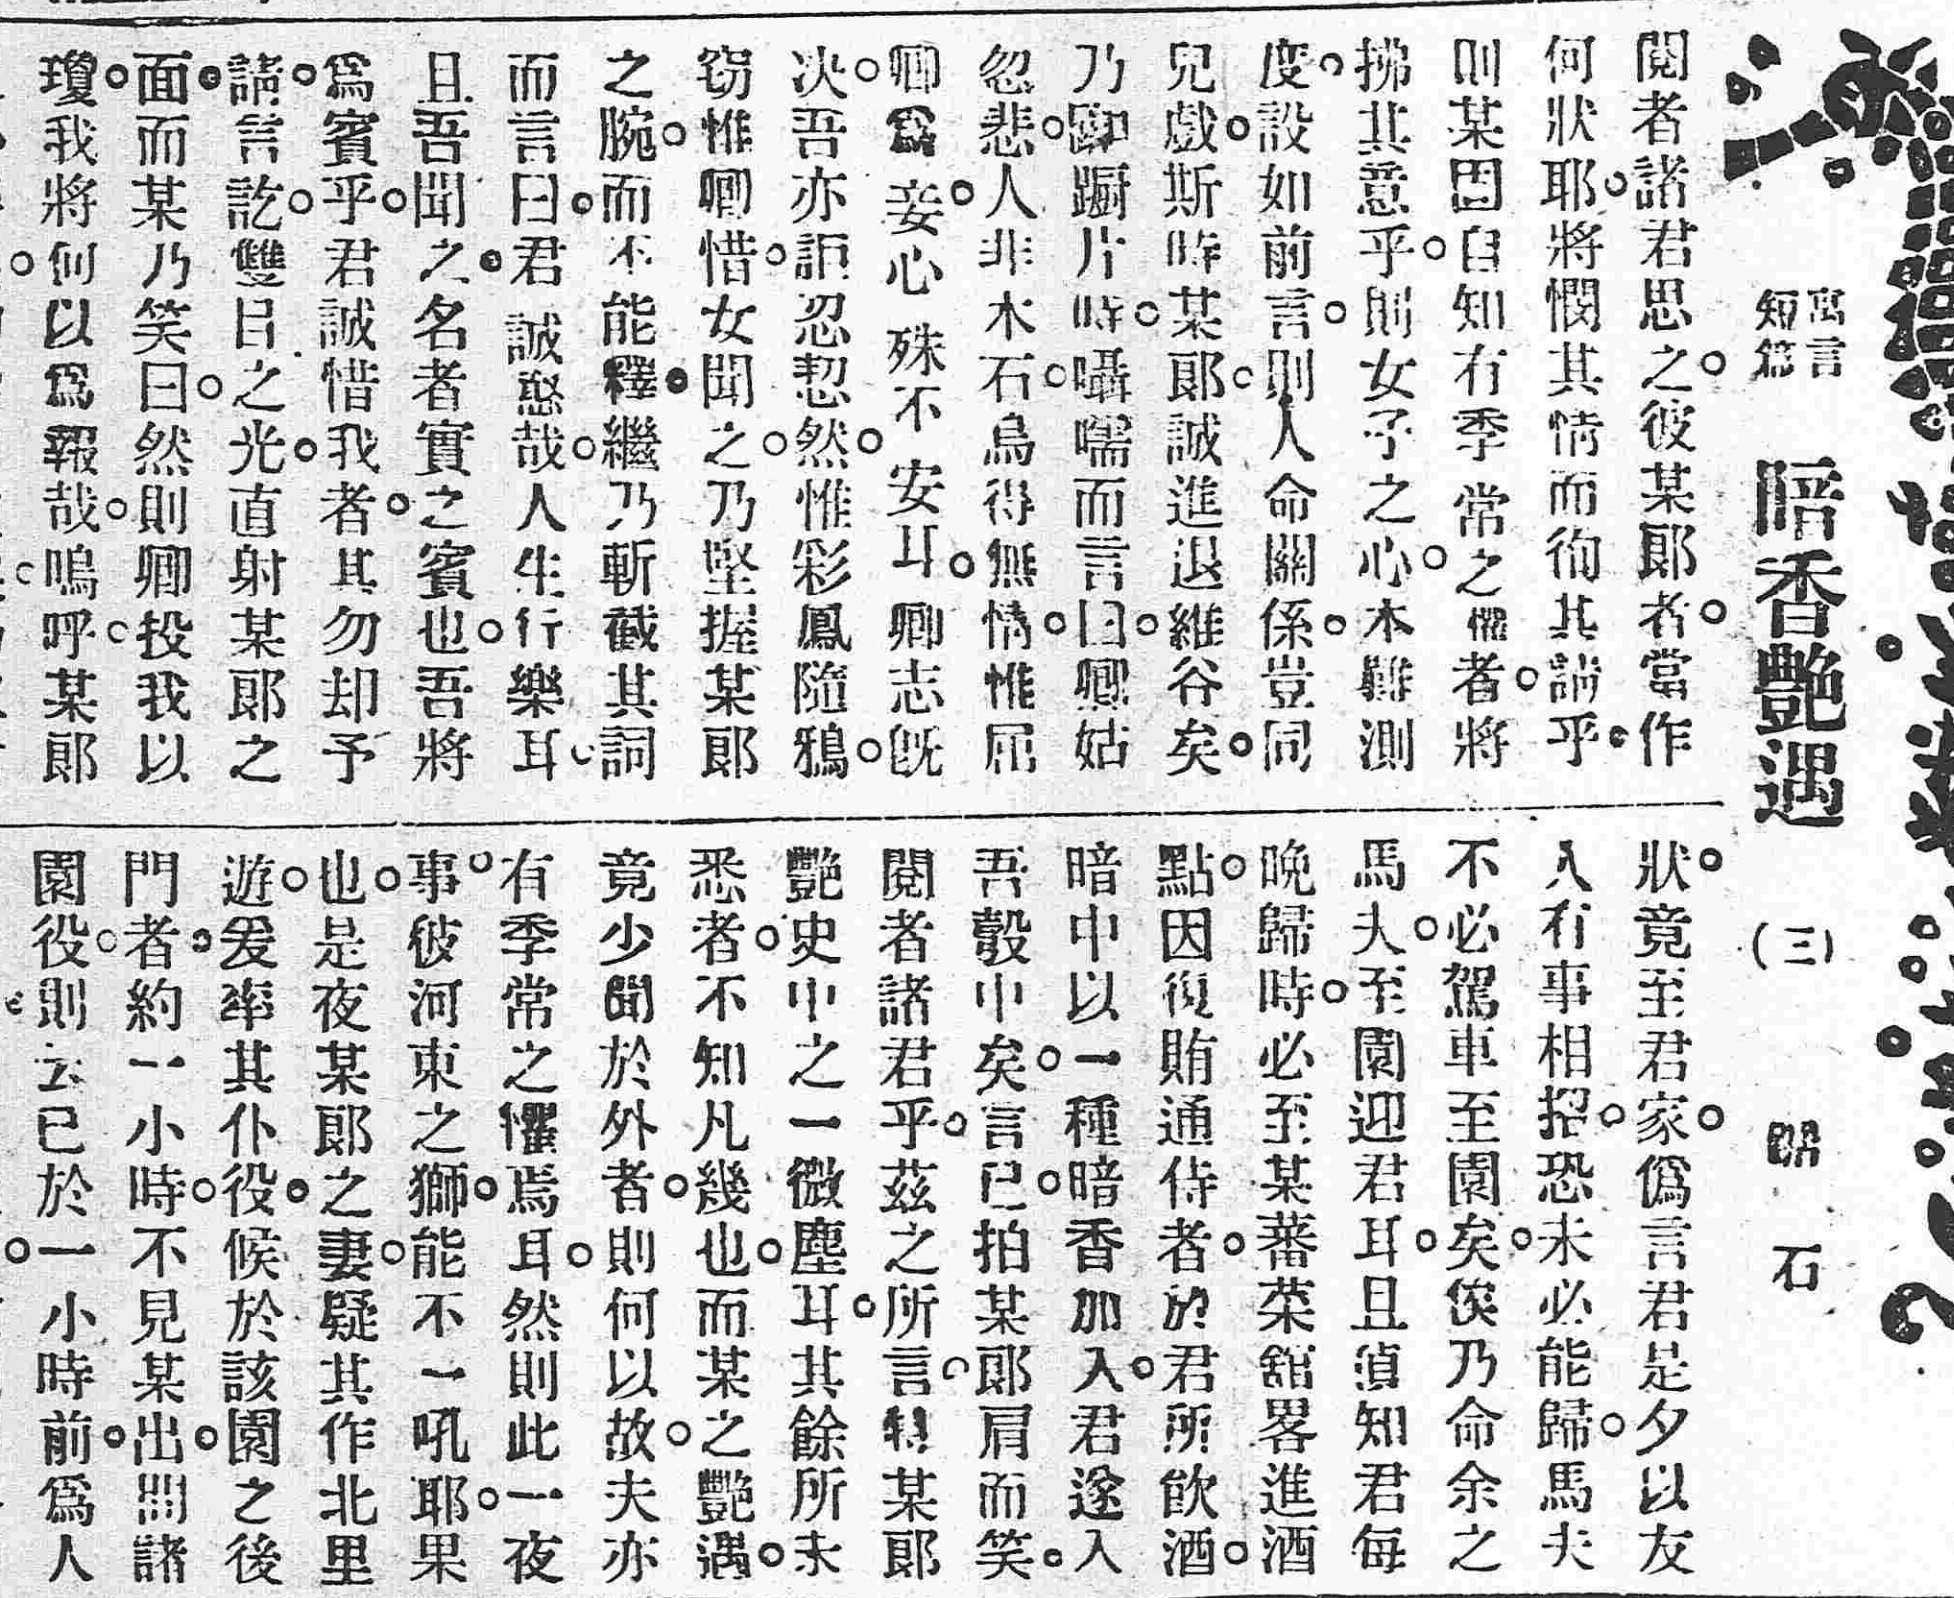 寓言短篇 暗香艷遇 (三) 石
閱者諸君思之。彼某郎者。當作
何狀耶。將憫其情而徇其請乎。
則某因自知有季常之懼者。將
拂其意乎。則女子之心。本難測
度。設如前言。則人命關係。豈同
兒戲。斯時某郎。誠進退維谷矣。
乃踟躕片時。囁嚅而言曰。卿姑
忽悲。人非木石。烏得無情。惟屈
卿爲妾。心殊不安耳。卿志旣
决。吾亦詎忍恝然。惟彩鳳隨鴉。
窃惟卿惜。女聞之。乃堅握某郎
之腕。而不能釋。繼乃斬截其詞
而言曰。君誠憨哉。人生行樂耳。
且吾聞之。名者實之賓也。吾將
爲賓乎。君誠惜我者。其勿却予
請。言訖。雙目之光。直射某郎之
面。而某乃笑曰。然則卿投我以
瓊。我將何以爲報哉。嗚呼。某郎
狀。竟至君家。僞言君是夕以友
人有事相招。恐未必能歸。馬夫
不必駕車至園矣。俟乃命余之
馬夫。至園迎君耳。且偵知君每
晚歸時。必至某蕃菜舘畧進酒
點。因復賄通侍者。於君所飲酒。
暗中以一種暗香加入。君遂入
吾彀中矣。言已。拍某郎肩而笑。
閱者諸君乎。茲之所言。特某郎
艷史中之一微塵耳。其餘所未
悉者。不知凡幾也。而某之艷遇。
竟少聞於外者。則何以故。夫亦
有季常之懼焉耳。然則此一夜
事。彼河東之獅。能不一吼耶。果
也。是夜某郎之妻。疑其作北里
遊。爰率其仆役。候於該園之後
門者。約一小時。不見某出。問諸
園役。則云已於一小時前。爲人